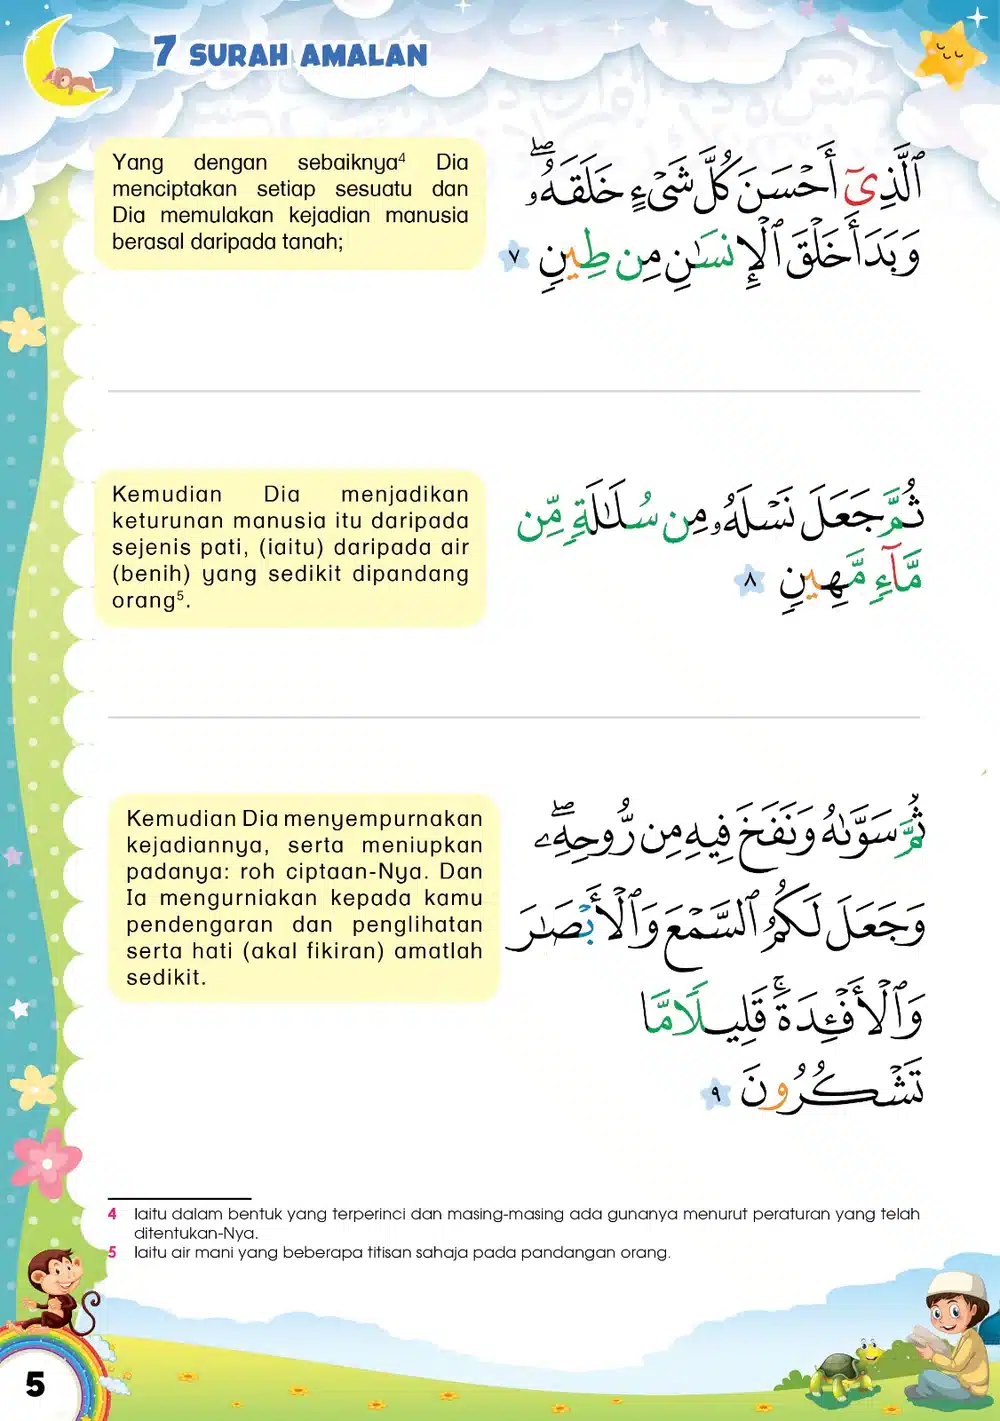 7 SURAH AMALAN
ٱلَّذِىٓ أَحْسَنَ كُلَّ شَىْءٍ خَلَقَهُۥ ۖ
وَبَدَأَ خَلْقَ ٱلْإِنسَـٰنِ مِن طِينٍ ٧
Yang dengan sebaiknya⁴ Dia
menciptakan setiap sesuatu dan
Dia memulakan kejadian manusia
berasal daripada tanah;
ثُمَّ جَعَلَ نَسْلَهُۥ مِن سُلَـٰلَةٍ مِّن
مَّآءٍ مَّهِينٍ ٨
Kemudian Dia menjadikan
keturunan manusia itu daripada
sejenis pati, (iaitu) daripada air
(benih) yang sedikit dipandang
orang⁵.
ثُمَّ سَوَّىٰهُ وَنَفَخَ فِيهِ مِن رُّوحِهِۦ ۖ
وَجَعَلَ لَكُمُ ٱلسَّمْعَ وَٱلْأَبْصَـٰرَ
وَٱلْأَفْـِٔدَةَ ۚ قَلِيلًا مَّا
تَشْكُرُونَ ٩
Kemudian Dia menyempurnakan
kejadiannya, serta meniupkan
padanya: roh ciptaan-Nya. Dan
Ia mengurniakan kepada kamu
pendengaran dan penglihatan
serta hati (akal fikiran) amatlah
sedikit.
4 Iaitu dalam bentuk yang terperinci dan masing-masing ada gunanya menurut peraturan yang telah
ditentukan-Nya.
5 Iaitu air mani yang beberapa titisan sahaja pada pandangan orang.
5